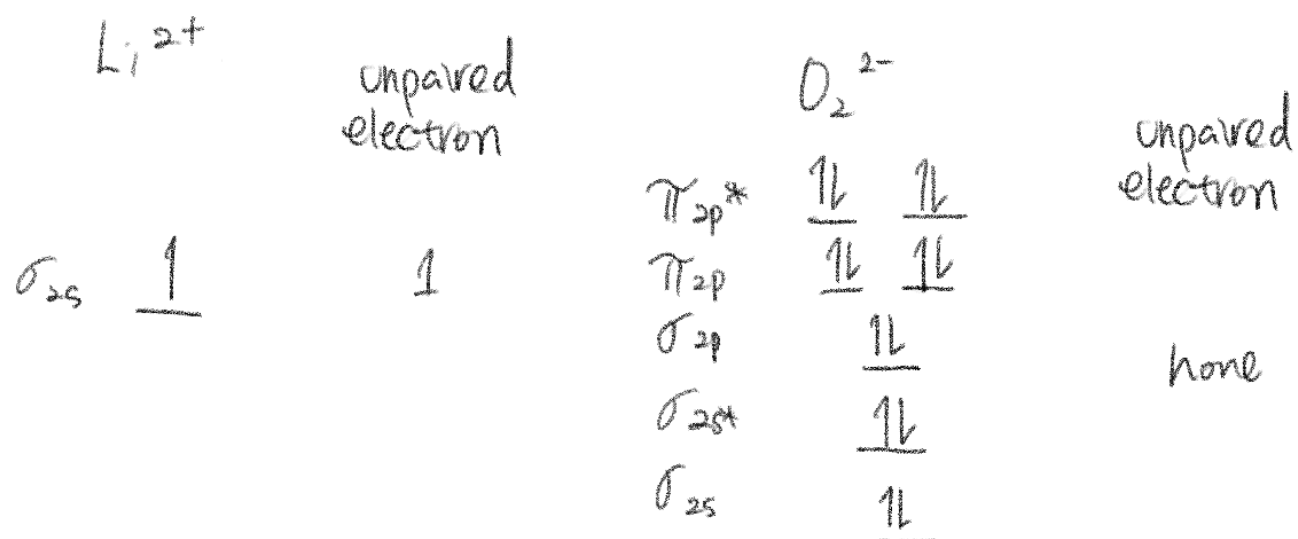 Li²⁺
unpaired
electron
σ₂ₛ 1 1
O₂²⁻
unpaired
electron
π₂ₚ* 1L 1L
π₂ₚ 1L 1L
σ₂ₚ 1L
none
σ₂ₛ* 1L
σ₂ₛ 1L